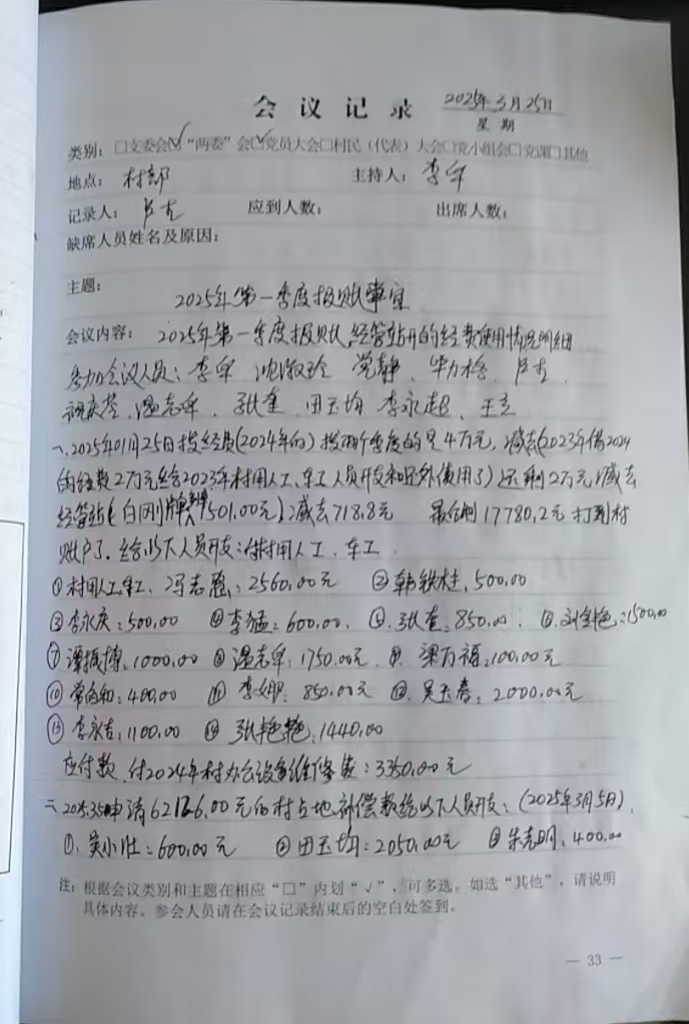 会议记录 2025年3月25日
星期
类别：□支委会☑“两委”会☑党员大会□村民（代表）大会□党小组会□党课□其他
地点：村部 主持人：李军
记录人：卢杰 应到人数： 出席人数：
缺席人员姓名及原因：
主题：
2025年第一季度报账事宜
会议内容：2025年第一季度报账，经管站开的经费使用情况明细
参加会议人员：李军 沈淑玲 党静 卢杰
温志军、张奎、田玉均 李永超、王立
一、2025年01月25日拨经费(2024年的)拨两个季度的是4万元，减去(2023年借2024
的经费2万元给2023年村用人工、车工人员开支和另外使用了)还剩2万元减去
经管站(白刚牌 1501.00元)减去718.8元 最后剩17780.2元打到村
账户了．给以下人员开支：付村用人工、车工．
①村用人工车工、冯志强：2560.00元 ②韩铁柱，500.00
③李永庆：500.00 ④李猛：600.00． ⑤．张奎：850.00． ⑥．刘艳：1500.00
⑦谭振博，1000.00 ⑧温志军：1750.00元． ⑨．梁万福：100.00元
⑩常尚和：400.00 ⑪李娜：850.00元 ⑫．吴玉春：2000.00元
⑬李永吉：1100.00 ⑭张艳艳：1440.00
应付款．付2024年村办公设备维修费：3350.00元
二、2025.3.5申请62126.00元的村占地补偿款给以下人员开支：(2025年3月5日)．
①．吴小壮：600.00元 ②田玉均：2050.00元 ③朱志明：400.00
注：根据会议类别和主题在相应“□”内划“√”，可多选。如选“其他”，请说明
具体内容。参会人员请在会议记录结束后的空白处签到。
— 33 —